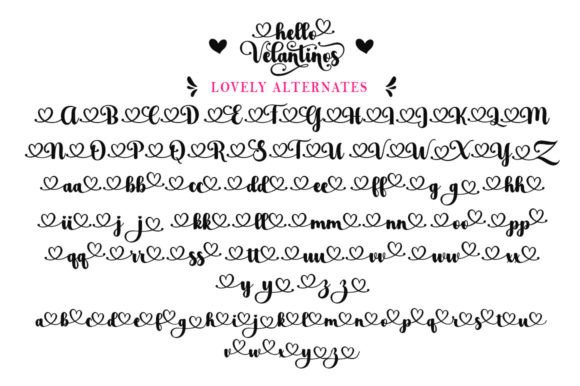 hello
Velantinos
LOVELY ALTERNATES
A B C D E F G H I J K L M
N O P Q R S T U V W X Y Z
aa bb cc dd ee ff g g hh
ii j j kk ll mm nn oo pp
qq rr ss tt uu vv ww xx
y y z z
a b c d e f g h i j k l m n o p q r s t u
v w x y z